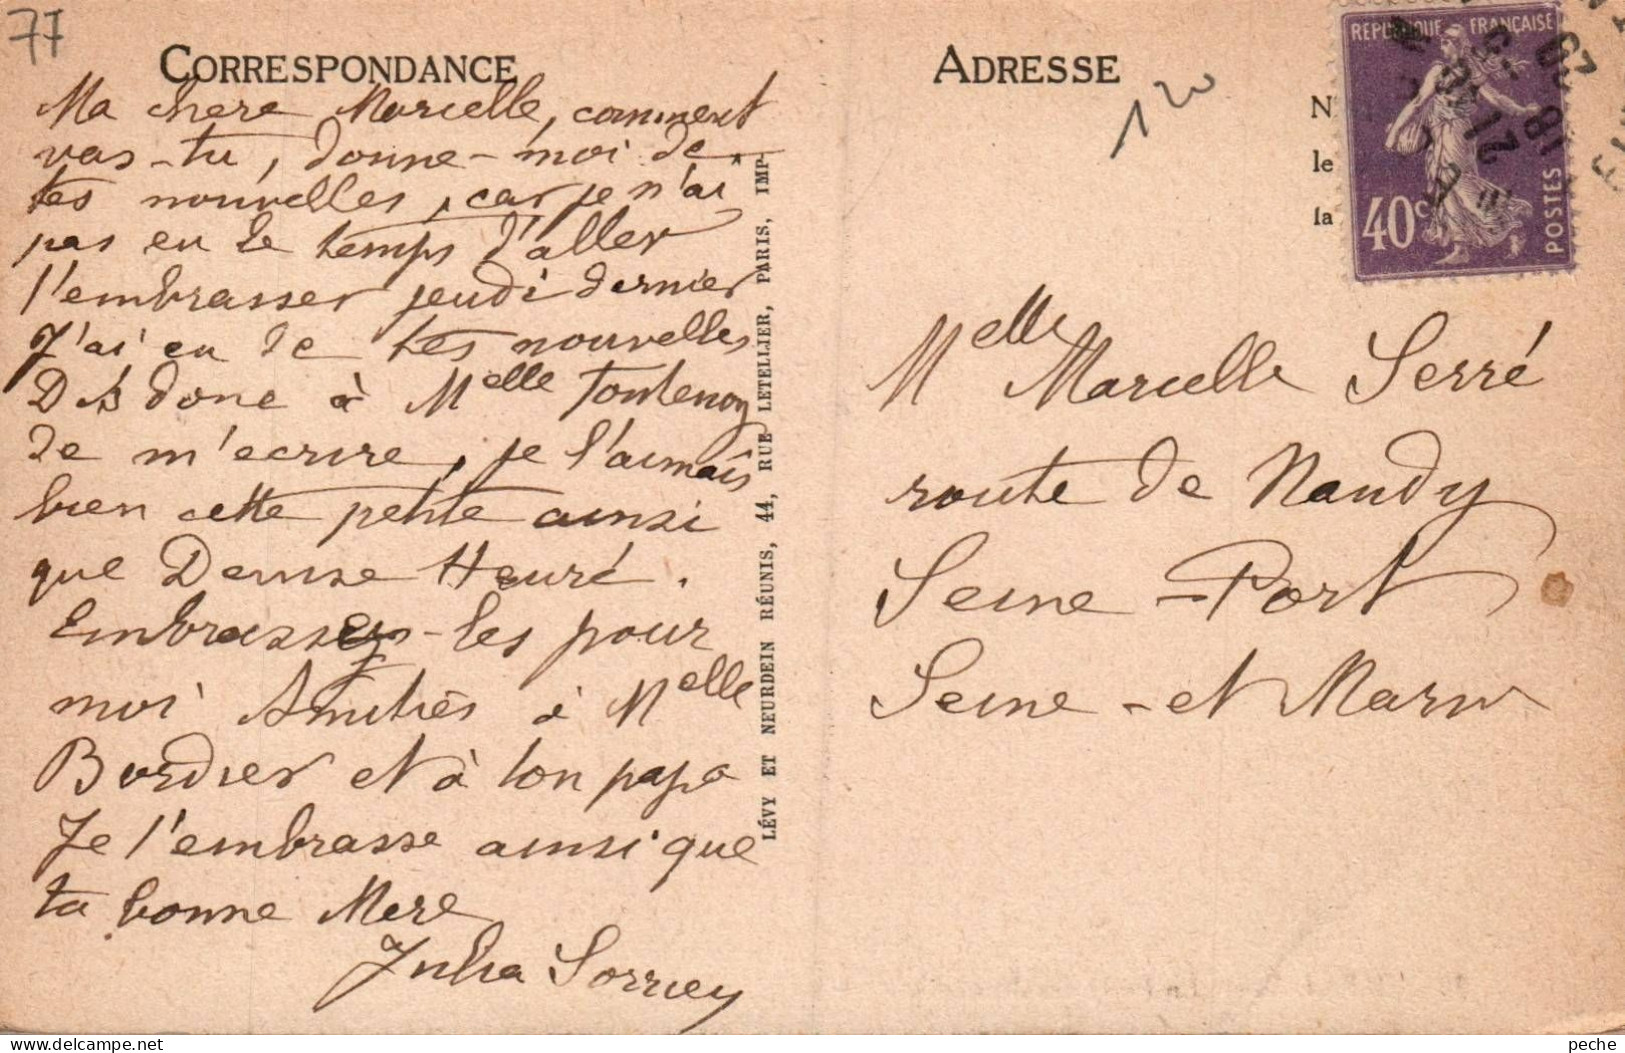 77
CORRESPONDANCE
Ma chere Marcelle, comment
vas-tu, donne-moi de
tes nouvelles, car je n'ai
pas eu le temps d'aller
t'embrasser jeudi dernier
J'ai eu de tes nouvelles
Dis donc à Melle Fontenoy
de m'ecrire, je l'aimais
bien cette petite ainsi
que Denise Heuré.
Embrasses-les pour
moi Amitiés à Melle
Bordier et à ton papa
Je t'embrasse ainsi que
ta bonne Mere
Julia Sorruey
LÉVY ET NEURDEIN RÉUNIS, 44, RUE LETELLIER, PARIS, IMP.
ADRESSE
120
N
le
la
RÉPUBLIQUE FRANÇAISE
40c
POSTES
Melle Marcelle Serré
route de Nandy
Seine-Port
Seine-et Marne
delcampe.net
peche